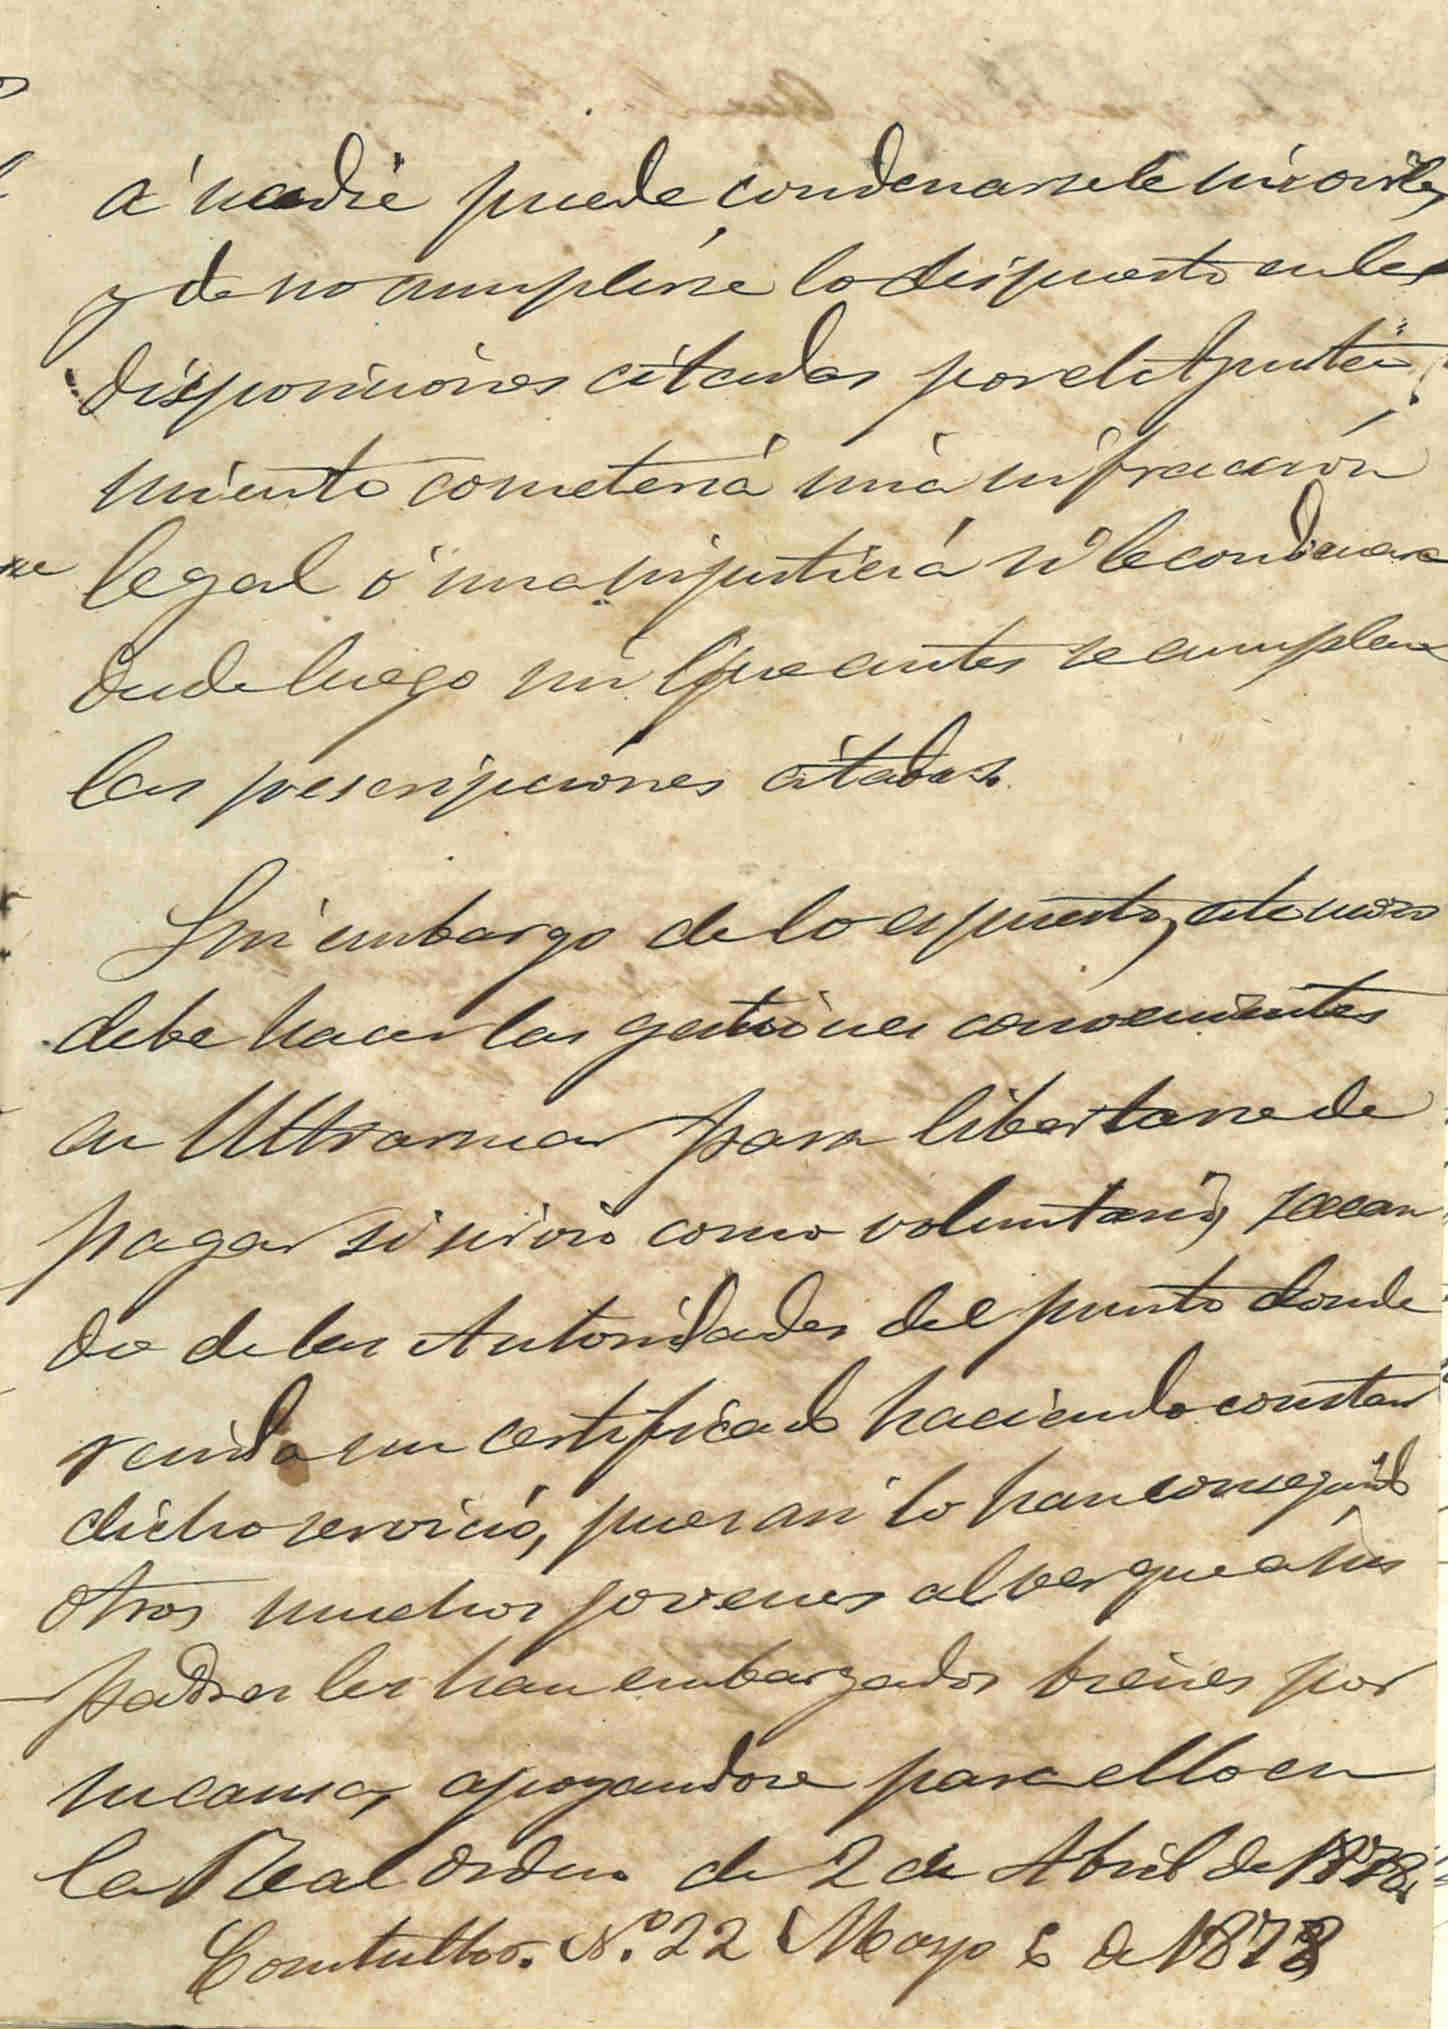 á nadie puede condenarsele sin oirle,
y de no cumplirse lo dispuesto en las
disposiciones citadas por el Ayunta-
miento cometeria una infraccion
legal ó una injusticia si le condenara
desde luego sin que antes se cumplan
las prescripciones citadas.
Sin embargo de lo espuesto, este mozo
debe hacer las gestiones convenientes
en Ultramar para libertarse de
pagar si sirvio como voluntario, sacan
do de las Autoridades del punto donde
resida un certificado haciendo constar
dicho servicio, pues asi lo han conseguido
otros muchos jovenes al ver que a sus
padres les han embargados bienes por
su causa, apoyandose para ello en
la Real orden de 2 de Abril de 1878,
Consultor. N.º 22 Mayo 6 de 1878